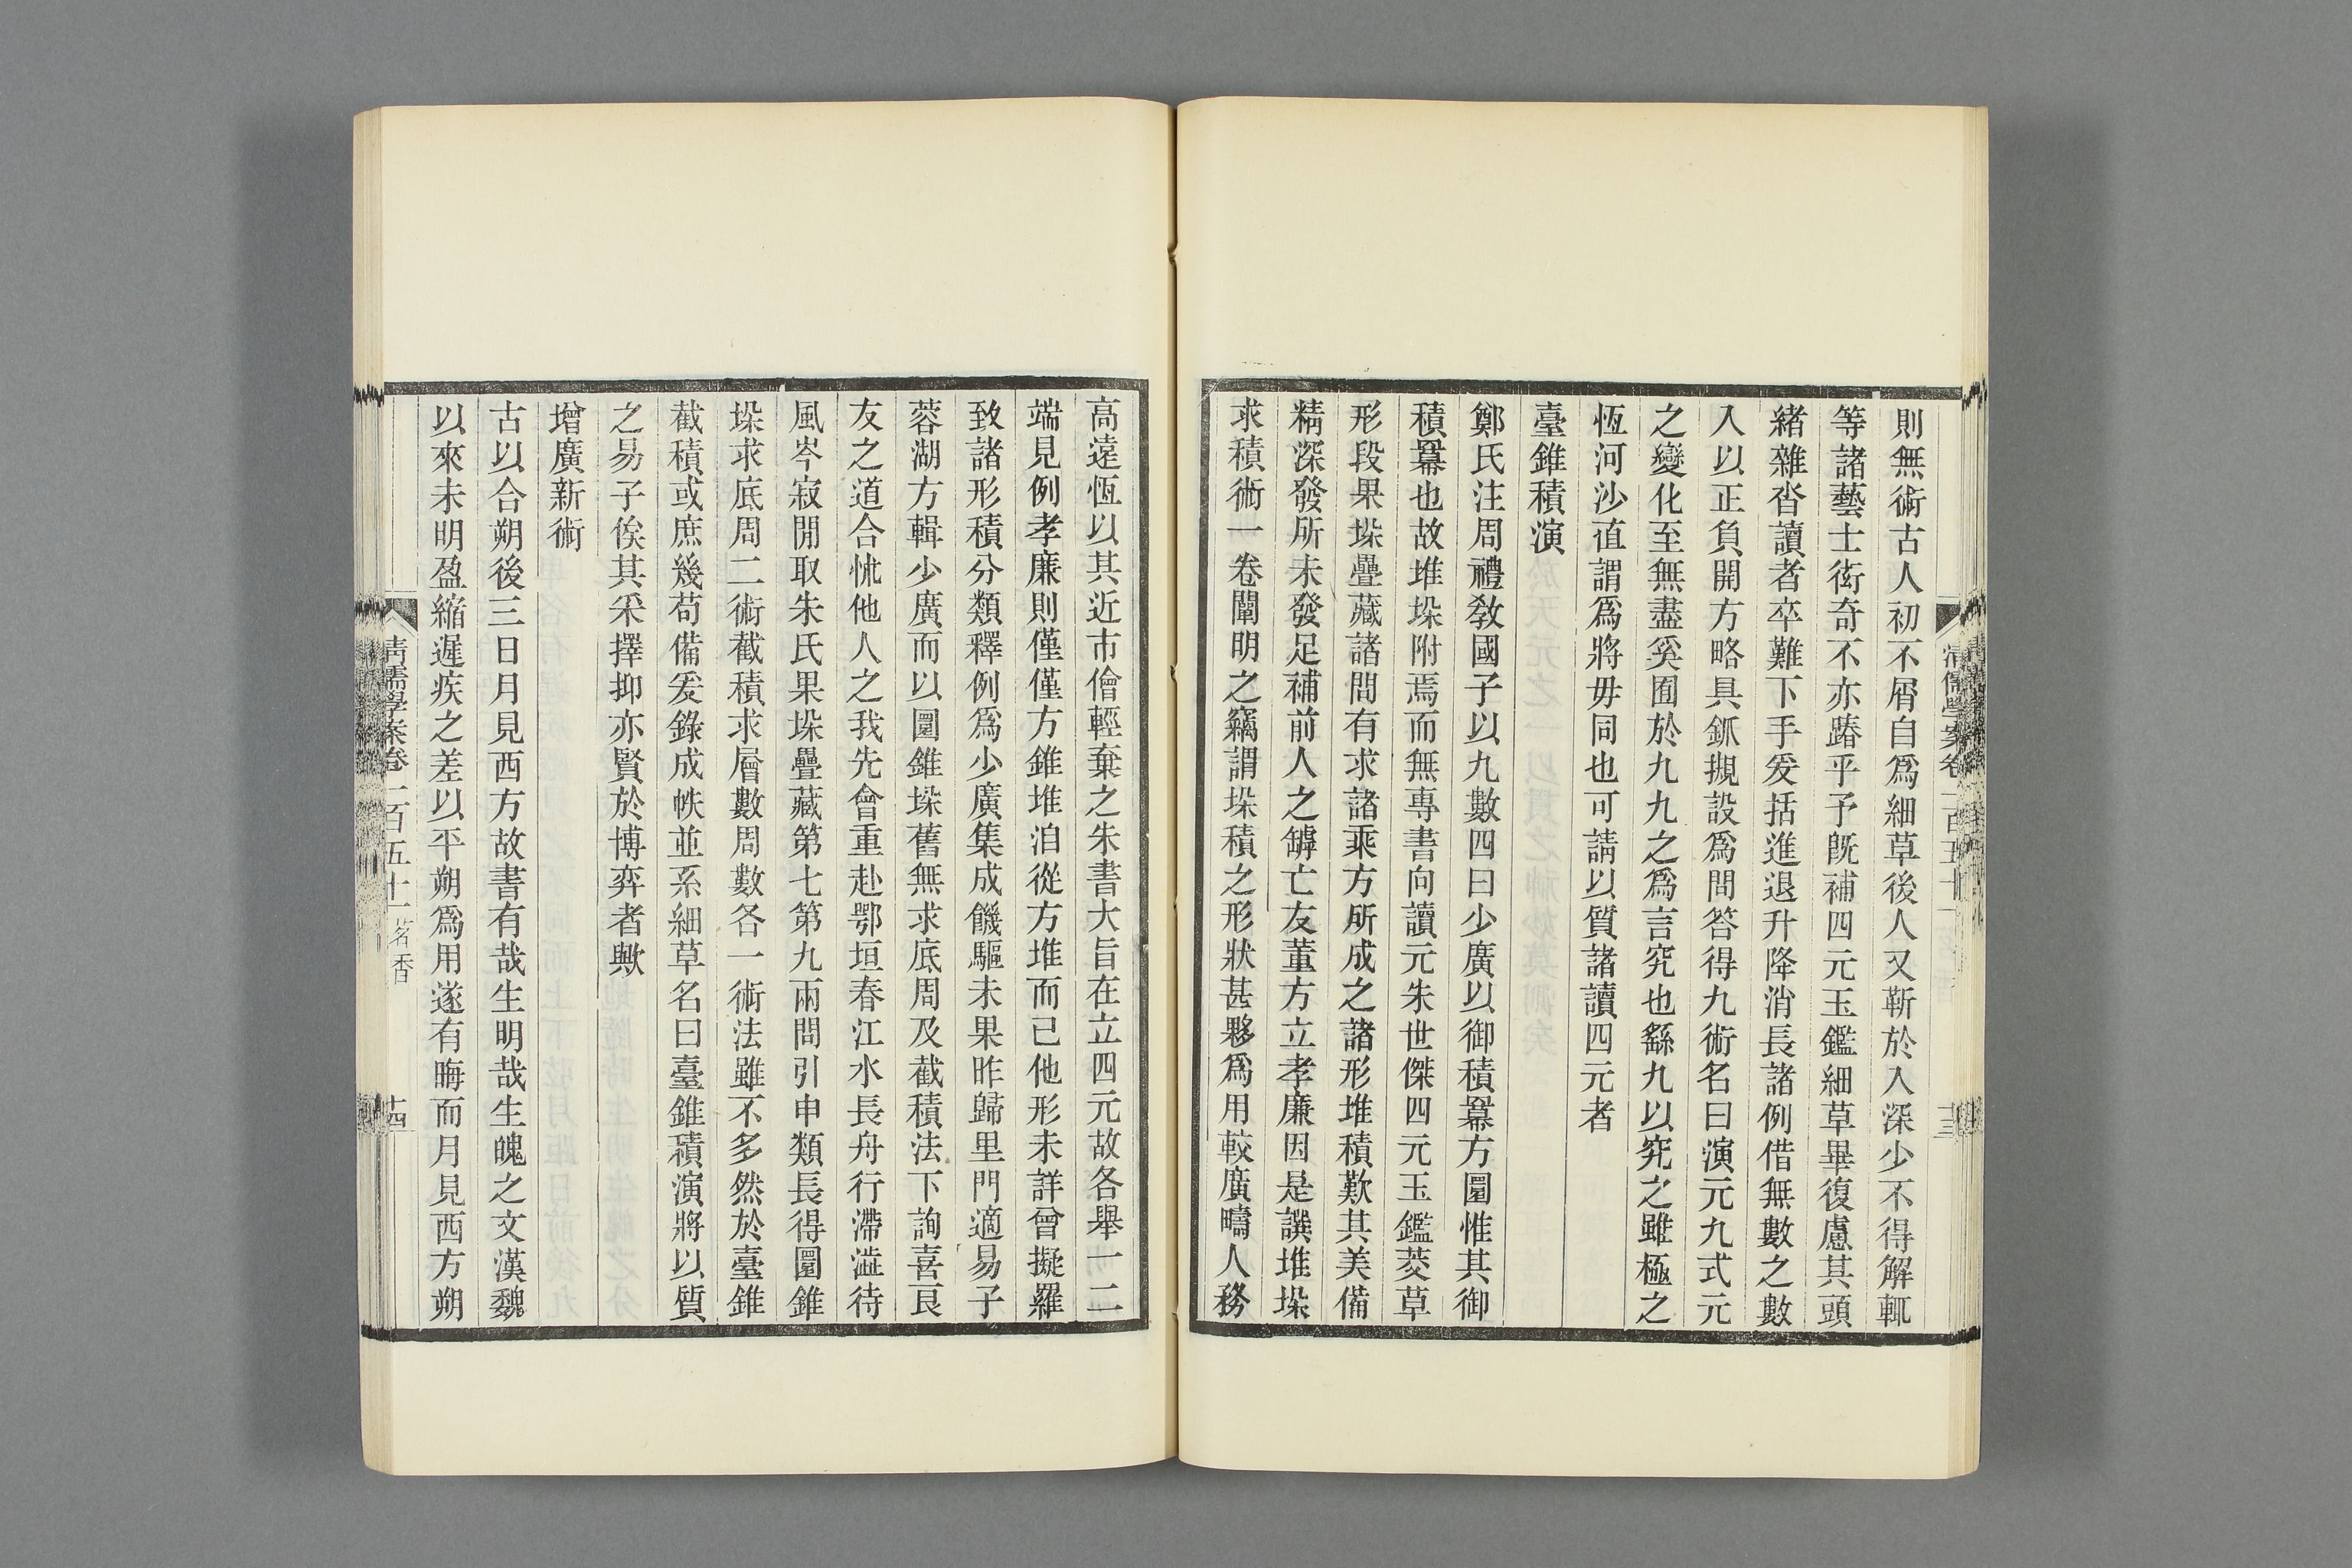 則無術古人初不屑自爲細草後人又靳於入深少不得解輒
等諸藝士衒奇不亦踳乎予旣補四元玉鑑細草畢復慮其頭
緒雜沓讀者卒難下手爰括進退升降消長諸例借無數之數
入以正負開方略具鈲摫設爲問答得九術名曰演元九式元
之變化至無盡奚囿於九九之爲言究也繇九以究之雖極之
恆河沙值謂爲將毋同也可請以質諸讀四元者
臺錐積演
鄭氏注周禮敎國子以九數四曰少廣以御積冪方圓惟其御
積冪也故堆垛附焉而無專書向讀元朱世傑四元玉鑑茭草
形段果垛疊藏諸問有求諸乘方所成之諸形堆積歎其美備
精深發所未發足補前人之罅亡友董方立孝廉因是譔堆垛
求積術一卷闡明之竊謂垛積之形狀甚夥爲用較廣疇人務
清儒學案卷一百五十一
十三
高遠恆以其近市儈輕棄之朱書大旨在立四元故各舉一二
端見例孝廉則僅僅方錐堆洎從方堆而已他形未詳曾擬羅
致諸形積分類釋例爲少廣集成饑驅未果昨歸里門適易子
蓉湖方輯少廣而以圓錐垛舊無求底周及截積法下詢喜艮
友之道合怵他人之我先會重赴鄂垣春江水長舟行滯澁待
風岑寂開取朱氏果垛疊藏第七第九兩問引申類長得圓錐
垛求底周二術截積求層數周數各一術法雖不多然於臺錐
截積或庶幾苟備爰錄成帙並系細草名曰臺錐積演將以質
之易子俟其釆擇抑亦賢於博弈者歟
增廣新術
古以合朔後三日月見西方故書有哉生明哉生魄之文漢魏
以來未明盈縮遲疾之差以平朔爲用遂有晦而月見西方朔
清儒學案卷一百五十一 茗香
十四